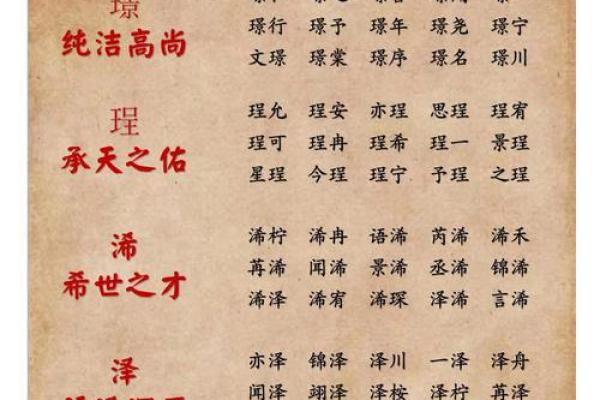 璟
璟行 璟予 璟年 璟尧 璟宁
纯洁高尚
文璟 璟棠 璟序 璟名 璟川
珵允 珵安 亦珵 思珵 珵宥
珵
珵可 珵冉 珵希 珵一 景珵
承天之佑
星珵 今珵 珵宁 予珵 之珵
浠柠 浠冉 语浠 芮浠 浠禾
浠
苒浠 闻浠 景浠 丞浠 锦浠
希世之才
浠泽 浠宥 浠琛 泽浠 言浠
亦泽 锦泽 泽川 一泽 泽舟
泽
闻泽 翊泽 泽桉 泽柠 苒泽